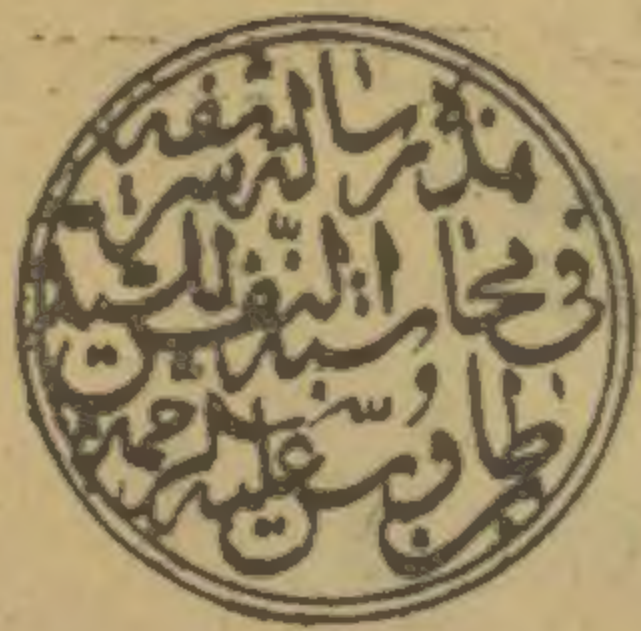 هذه رسالة شريفه
في محاسبة النفس للسيد
بن طاوس عليه الرحمة